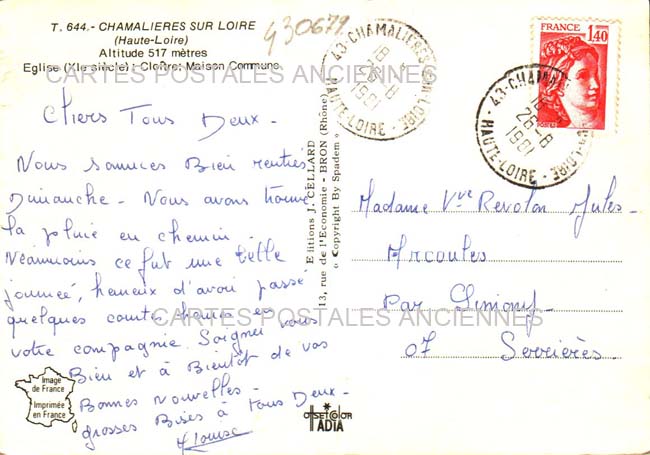 T. 644.- CHAMALIERES SUR LOIRE
(Haute-Loire)
Altitude 517 mètres
Eglise (XIe siècle) : Cloître: Maison Commune
430679
CARTES POSTALES ANCIENNES
Chers Tous Deux -
Nous sommes Bien rentrés
Dimanche - Nous avons trouvé
la pluie en chemin.
Néanmoins ce fut une belle
journée, heureux d'avoir passé
quelques courtes heures en
votre compagnie. Soignez vous
Bien et à Bientôt de vos
Bonnes nouvelles -
grosses Bises à tous Deux -
Louise
Image
de France
Imprimée
en France
Editions J. CELLARD
13, rue de l'Economie - BRON (Rhône)
« Copyright By Spadem »
43-CHAMALIERES-SUR-LOIRE
18 H
26-8
1981
HAUTE-LOIRE
FRANCE
1,40
POSTES
43-CHAMALIERES-SUR-LOIRE
18 H
26-8
1981
HAUTE-LOIRE
Madame Vve Revolon Jules -
Arcoules
par Limony -
07 Serrières.
CARTES POSTALES ANCIENNES
OFFSETCOLOR
IADIA